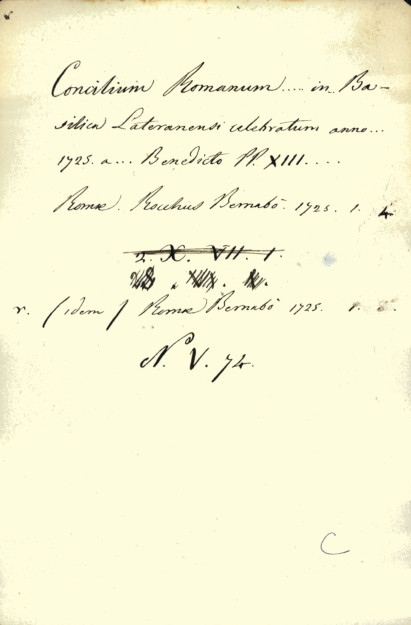 Concilium Romanum .... in Ba-
silica Lateranensi celebratum anno...
1725. a... Benedicto PP. XIII. ....
Romæ. Rocchus Bernabò. 1725. 1. 4
2. X. VII. 1.
r. (idem) Romæ Bernabò 1725. 1.
N. V. 74.
C